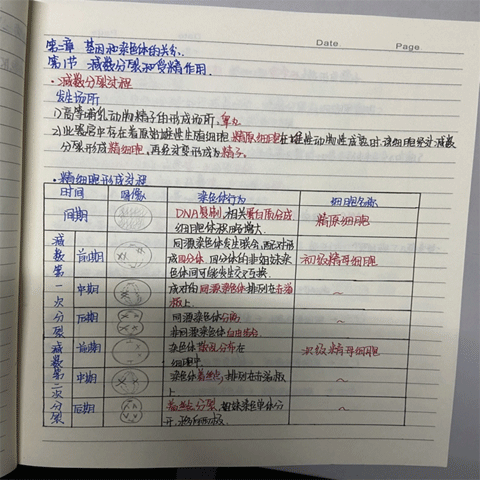 Date Page
第二章 基因和染色体的关系.
第1节 减数分裂和受精作用.
·减数分裂过程
发生场所
1)高等哺乳动物精子的形成场所,睾丸
2)此器官中存在着原始雄性生殖细胞 精原细胞,在雄性动物性成熟时,该细胞经过减数
分裂形成精细胞,再经过变形成为精子.
·精细胞形成过程
时间 图像 染色体行为 细胞名称
间期 DNA复制,相关蛋白质合成 精原细胞
细胞体积略增大.
减数第一次分裂 前期 同源染色体发生联会,两两对形
成四分体,四分体的非姐妹染 初级精母细胞
色体间可能发生交叉互换.
中期 成对的同源染色体排列在赤道 ~
板上.
后期 同源染色体分离, ~
非同源染色体自由组合.
减数第二次分裂 前期 染色体散乱分布在 次级精母细胞
细胞中.
中期 染色体着丝点,排列在赤道板 ~
上
后期 着丝点分裂,姐妹染色单体分 ~
开,移向两极.